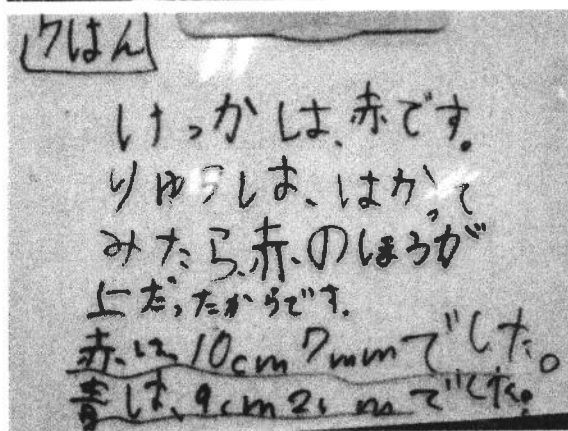 7はん
けっかは、赤です。
りゆうは、はかって
みたら、赤、のほうが
上だったからです。
赤は 10cm 7mmでした。
青は、9cm 2mmでした。